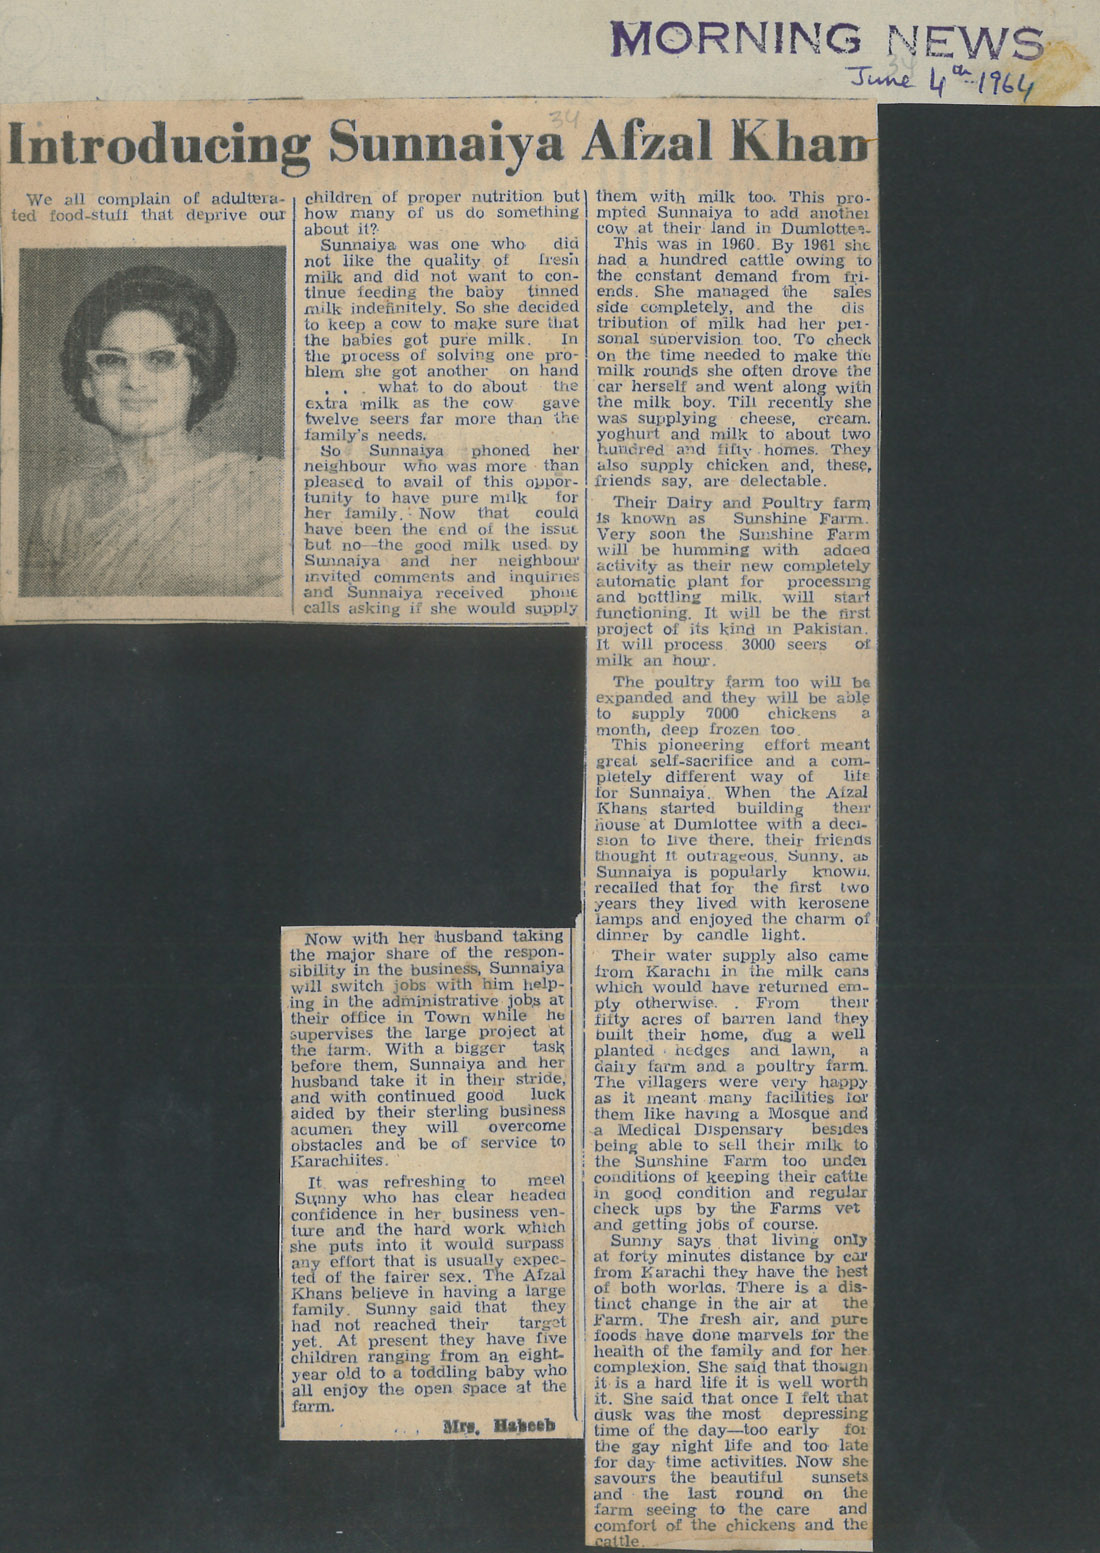 MORNING NEWS
June 4th 1964
34
Introducing Sunnaiya Afzal Khan
We all complain of adultera-
ted food-stuff that deprive our
children of proper nutrition but
how many of us do something
about it?
Sunnaiya was one who did
not like the quality of fresh
milk and did not want to con-
tinue feeding the baby tinned
milk indefinitely. So she decided
to keep a cow to make sure that
the babies got pure milk. In
the process of solving one pro-
blem she got another on hand
. . . what to do about the
extra milk as the cow gave
twelve seers far more than the
family's needs.
So Sunnaiya phoned her
neighbour who was more than
pleased to avail of this oppor-
tunity to have pure milk for
her family. Now that could
have been the end of the issue
but no—the good milk used by
Sunnaiya and her neighbour
invited comments and inquiries
and Sunnaiya received phone
calls asking if she would supply
them with milk too. This pro-
mpted Sunnaiya to add another
cow at their land in Dumlottee.
This was in 1960. By 1961 she
had a hundred cattle owing to
the constant demand from fri-
ends. She managed the sales
side completely, and the dis
tribution of milk had her per-
sonal supervision too. To check
on the time needed to make the
milk rounds she often drove the
car herself and went along with
the milk boy. Till recently she
was supplying cheese, cream.
yoghurt and milk to about two
hundred and fifty homes. They
also supply chicken and, these,
friends say, are delectable.
Their Dairy and Poultry farm
is known as Sunshine Farm.
Very soon the Sunshine Farm
will be humming with added
activity as their new completely
automatic plant for processing
and bottling milk. will start
functioning. It will be the first
project of its kind in Pakistan.
It will process 3000 seers of
milk an hour.
The poultry farm too will be
expanded and they will be able
to supply 7000 chickens a
month, deep frozen too.
This pioneering effort meant
great self-sacrifice and a com-
pletely different way of life
for Sunnaiya. When the Afzal
Khans started building their
house at Dumlottee with a deci-
sion to live there, their friends
thought it outrageous. Sunny, as
Sunnaiya is popularly known,
recalled that for the first two
years they lived with kerosene
lamps and enjoyed the charm of
dinner by candle light.
Their water supply also came
from Karachi in the milk cans
which would have returned em-
pty otherwise. . From their
fifty acres of barren land they
built their home, dug a well
planted hedges and lawn, a
dairy farm and a poultry farm.
The villagers were very happy
as it meant many facilities for
them like having a Mosque and
a Medical Dispensary besides
being able to sell their milk to
the Sunshine Farm too under
conditions of keeping their cattle
in good condition and regular
check ups by the Farms vet
and getting jobs of course.
Sunny says that living only
at forty minutes distance by car
from Karachi they have the best
of both worlds. There is a dis-
tinct change in the air at the
Farm. The fresh air, and pure
foods have done marvels for the
health of the family and for her
complexion. She said that though
it is a hard life it is well worth
it. She said that once I felt that
dusk was the most depressing
time of the day—too early for
the gay night life and too late
for day time activities. Now she
savours the beautiful sunsets
and the last round on the
farm seeing to the care and
comfort of the chickens and the
cattle.
Now with her husband taking
the major share of the respon-
sibility in the business, Sunnaiya
will switch jobs with him help-
ing in the administrative jobs at
their office in Town while he
supervises the large project at
the farm. With a bigger task
before them, Sunnaiya and her
husband take it in their stride,
and with continued good luck
aided by their sterling business
acumen they will overcome
obstacles and be of service to
Karachiites.
It was refreshing to meet
Sunny who has clear headed
confidence in her business ven-
ture and the hard work which
she puts into it would surpass
any effort that is usually expec-
ted of the fairer sex. The Afzal
Khans believe in having a large
family. Sunny said that they
had not reached their target
yet. At present they have five
children ranging from an eight-
year old to a toddling baby who
all enjoy the open space at the
farm.
Mrs. Habeeb